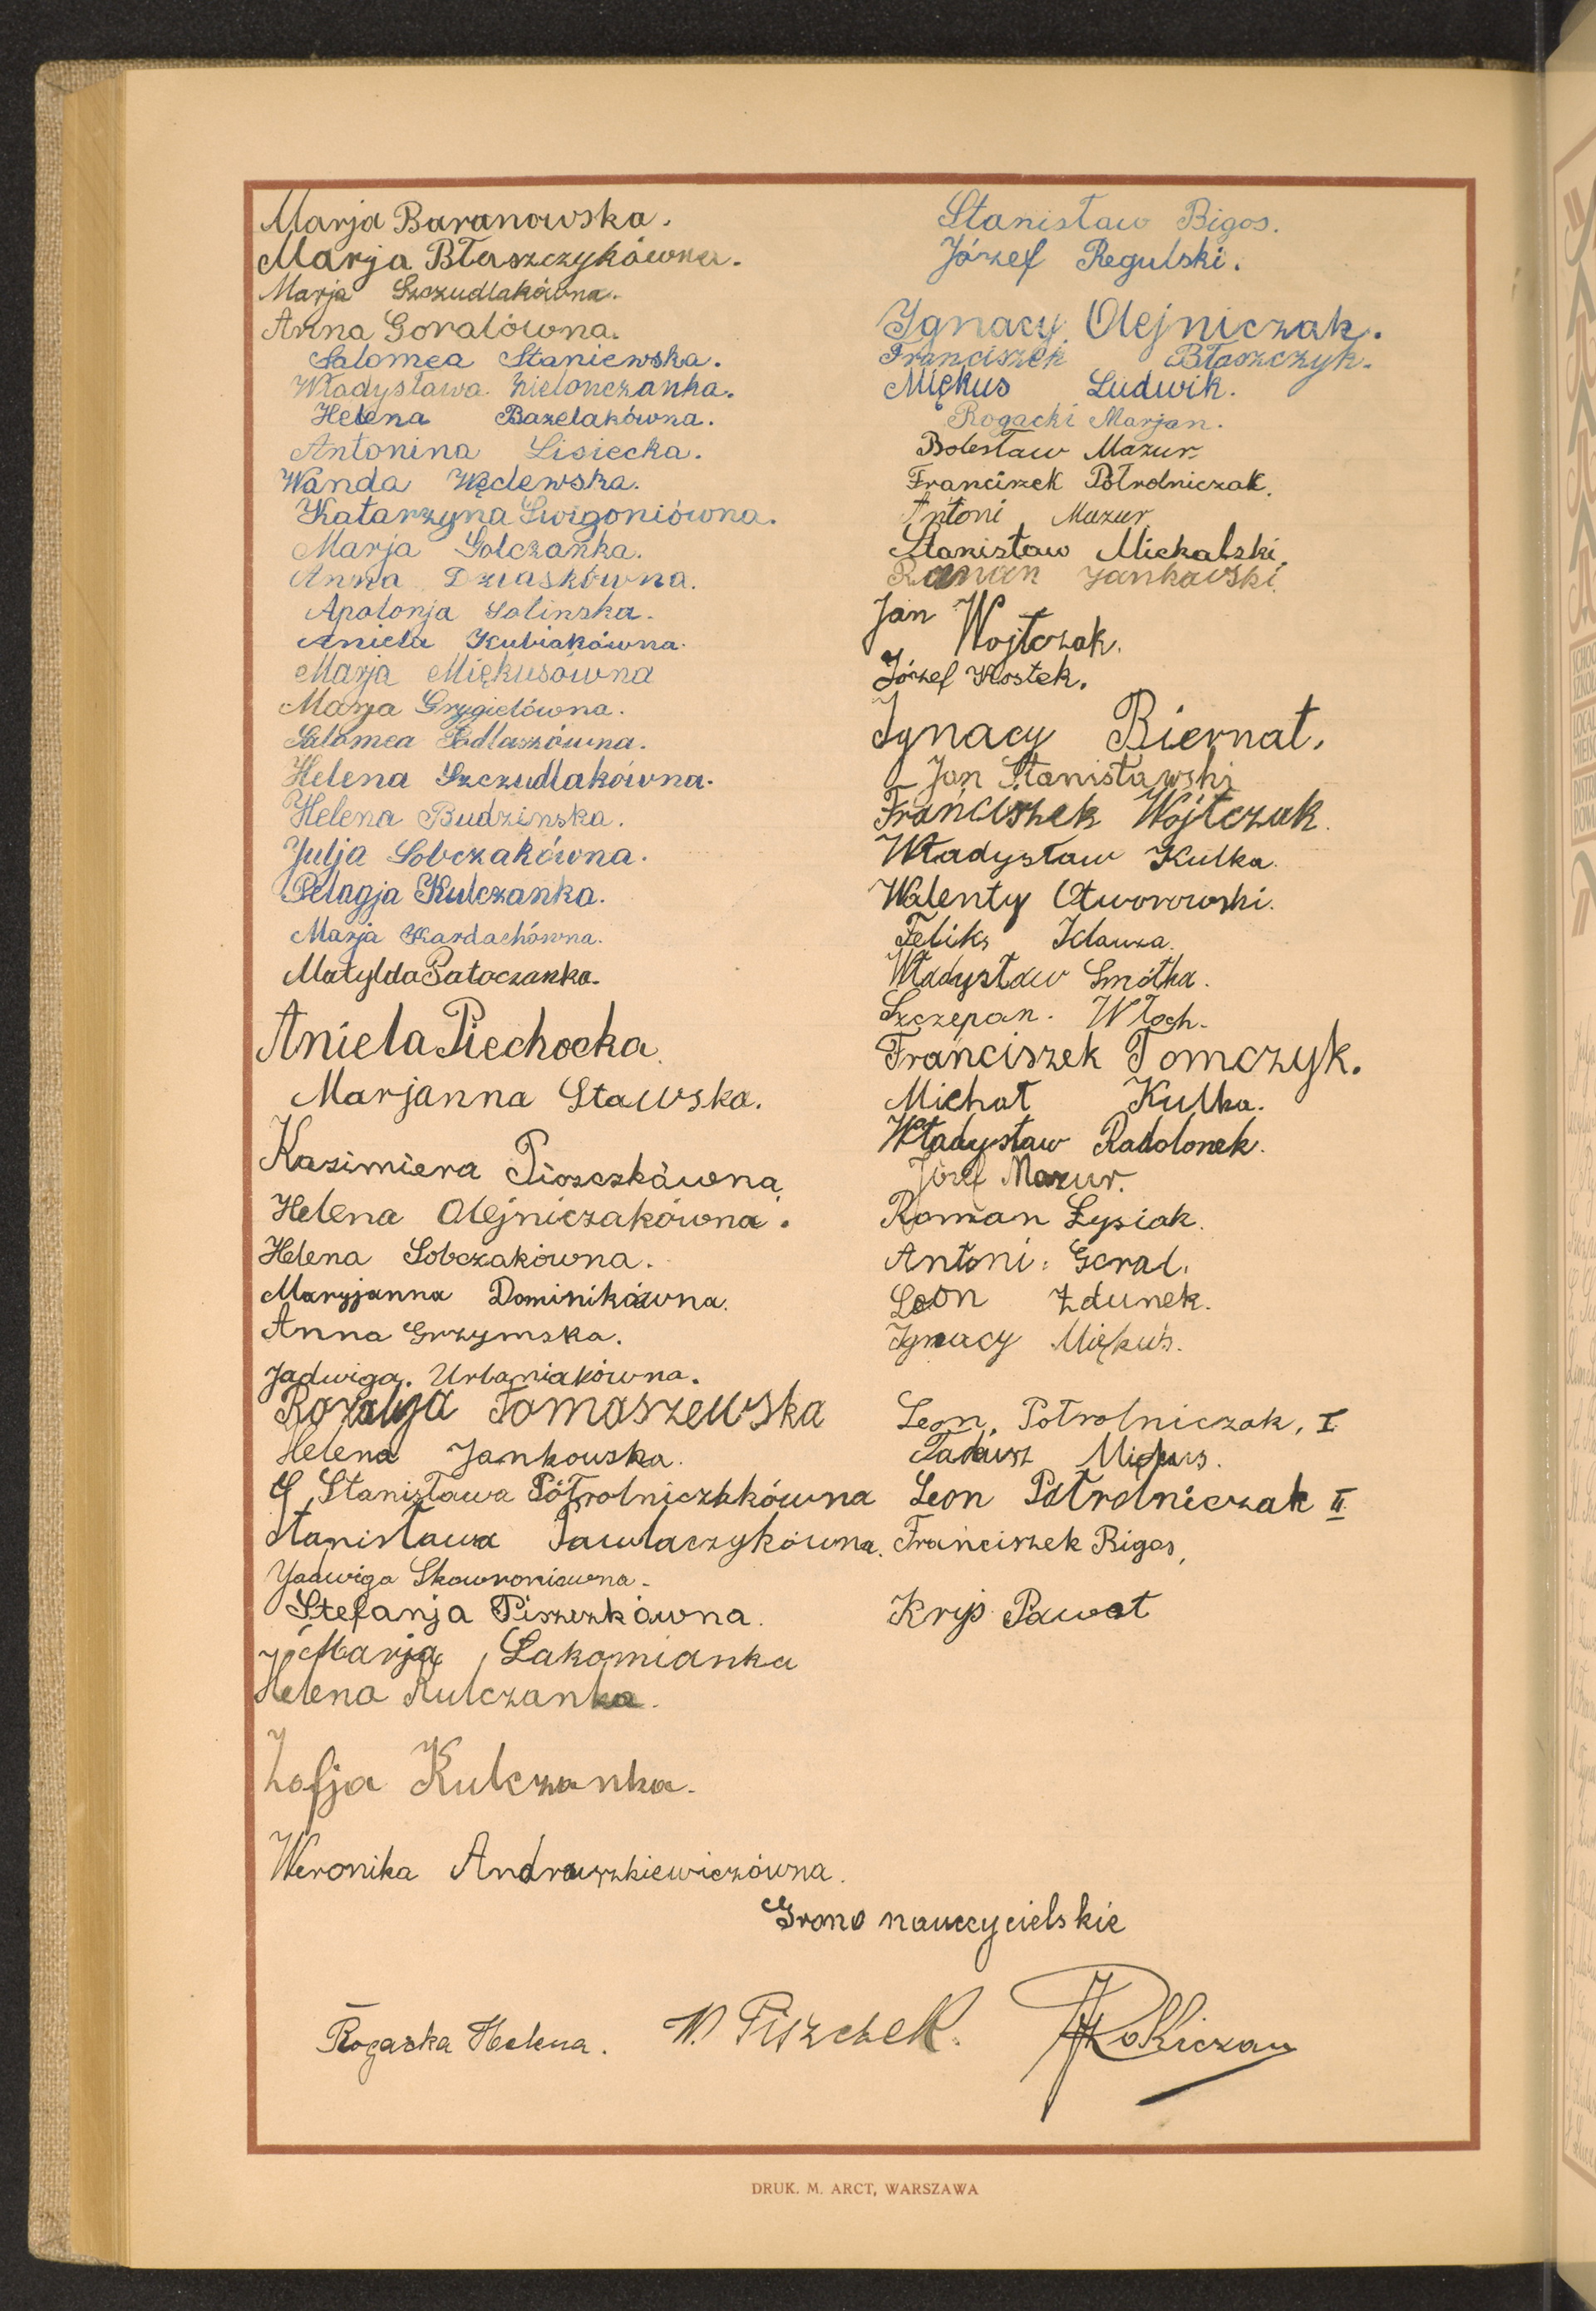 Marja Baranowska.
Marja Błaszczykówna.
Marja Szczudlakówna.
Anna Goralówna.
Salomea Staniewska.
Władysława Zielonczanka.
Helena Bazelakówna.
Antonina Lisiecka.
Wanda Węclewska.
Katarzyna Swigoniówna.
Marja Golczanka.
Anna Dziaskówna.
Apolonja Solinska.
Aniela Kubiakówna.
Marja Miękusówna
Marja Grygielówna.
Salomea Podlaszówna.
Helena Szczudlakówna.
Helena Budzinska.
Julja Sobczakówna.
Pelagja Kulczanka.
Marja Kardachówna.
Matylda Patoczanka.
Aniela Piechocka.
Marjanna Stawska.
Kazimiera Piszczkówna.
Helena Olejniczakówna.
Helena Sobczakówna.
Maryjanna Dominikówna.
Anna Grzymska.
Jadwiga. Urbaniakówna.
Rozalja Tomaszewska
Helena Jankowska.
Stanisława Półrolniczakówna
Stanisława Pawlaczykówna.
Jadwiga Skowroniówna.
Stefanja Piszczkówna.
Marja Łakomianka
Helena Kulczanka.
Zofja Kulczanka.
Weronika Andrzuszkiewiczówna.
Stanisław Bigos.
Józef Regulski.
Ignacy Olejniczak.
Franciszek Błaszczyk.
Miękus Ludwik.
Rogacki Marjan.
Bolesław Mazur.
Franciszek Półrolniczak.
Antoni Mazur
Stanisław Michalski.
Roman Jankowski.
Jan Wojtczak.
Józef Kostek.
Ignacy Biernat.
Jan Stanisławski
Franciszek Wójtczak.
Władysław Kulka.
Walenty Otworowski.
Feliks Klauza.
Władysław Smótka.
Szczepan. Włoch.
Franciszek Tomczyk.
Michał Kulka.
Władysław Radolonek.
Józef Mazur.
Roman Łysiak.
Antoni Goral.
Leon Zdunek.
Ignacy Miękus.
Leon, Półrolniczak, I
Tadeusz Miękus.
Leon Półrolniczak II
Franciszek Bigos,
Kryś Paweł
Grono nauczycielskie
Rogacka Helena. W. Piszczek.
DRUK. M. ARCT, WARSZAWA